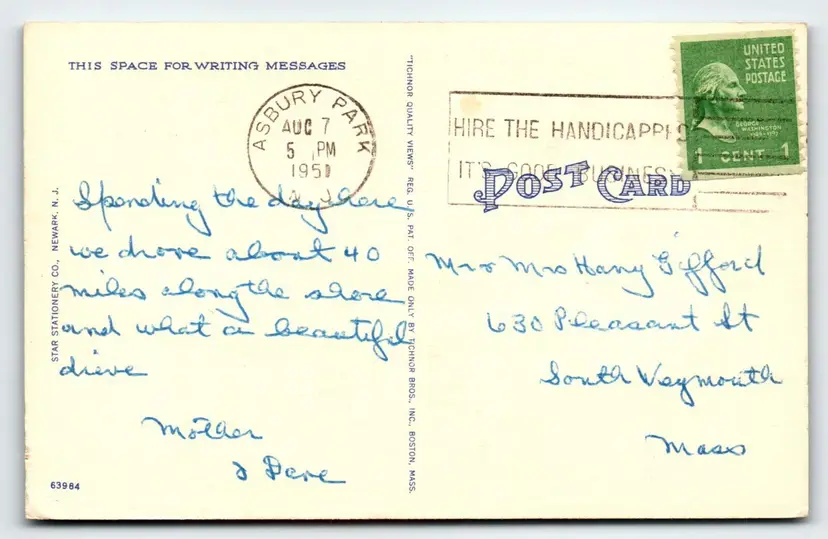 THIS SPACE FOR WRITING MESSAGES
ASBURY PARK
AUG 7
5 PM
1951
N. J.
Spending the day here
we drove about 40
miles along the shore
and what a beautiful
drive
Mother
& Dave
63984
STAR STATIONERY CO., NEWARK, N. J.
"TICHNOR QUALITY VIEWS" REG. U.S. PAT. OFF. MADE ONLY BY TICHNOR BROS., INC., BOSTON, MASS.
HIRE THE HANDICAPPED
IT'S GOOD BUSINESS
POST CARD
UNITED
STATES
POSTAGE
GEORGE
WASHINGTON
1 CENT 1
Mr & Mrs Harry Gifford
630 Pleasant St
South Weymouth
Mass